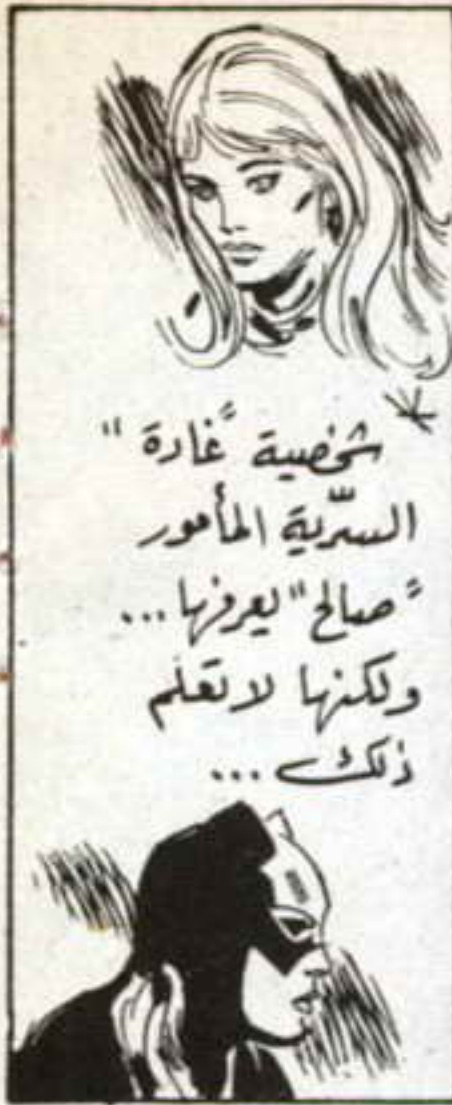 * شخصية "غادة"
السرّية المأمور
"صالح" يعرفها...
ولكنها لا تعلم
ذلك...